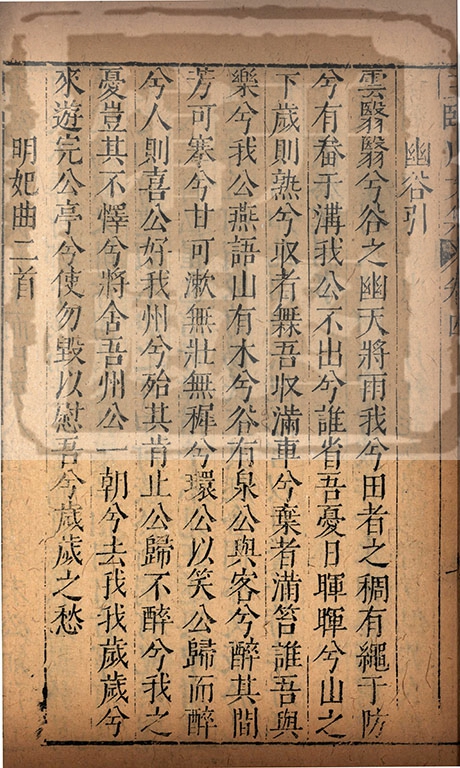 幽谷引
雲翳翳兮谷之幽天將雨我兮田者之稠有繩于防
兮有畚于溝我公不出兮誰省吾憂日暉暉兮山之
下歲則熟兮収者舞吾収滿車兮棄者滿笞誰吾與
樂兮我公燕語山有木兮谷有泉公與客兮醉其間
芳可搴兮甘可漱無壯無穉兮環公以笑公歸而醉
兮人則喜公好我州兮殆其肯止公歸不醉兮我之
憂豈其不懌兮將舍吾州公一朝兮去我我歲歲兮
來遊完公亭兮使勿毀以慰吾兮歲歲之愁
明妃曲二首